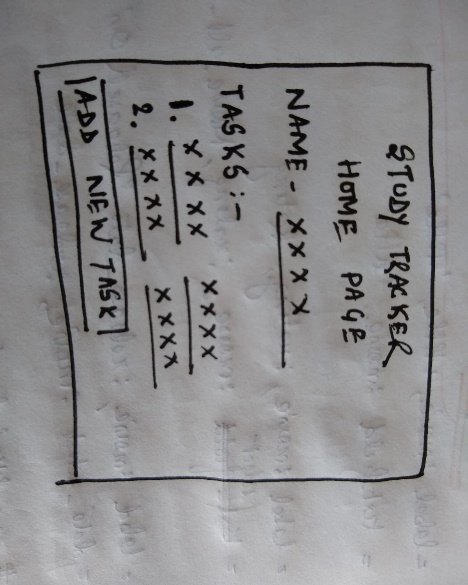 STUDY TRACKER
HOME PAGE
NAME - XXXX
TASKS :-
1. XXXX XXXX
2. XXXX XXXX
ADD NEW TASK